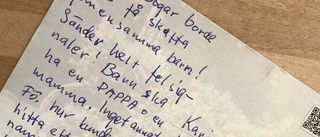 bögar borde
få skaffa
gemensamma barn!
Sänder helt fel sig-
naler! Barn ska
ha en PAPPA o en
mamma. Inget annat
Fö. hur kunde
hitta ett
nam
Kari